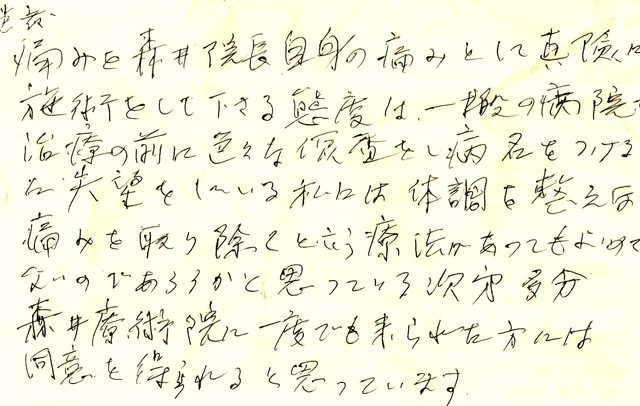 痛みを森井院長自身の痛みとして真険に
施術をして下さる態度は、一般の病院
治療の前に色々な検査をし病名をつける
に失望をしている私には体調を整えれば
痛みを取り除くと云う療法があってもよいので
ないのであろうかと思っている次第 多分
森井療術院に一度でも来られた方には
同意を得られると思っています。